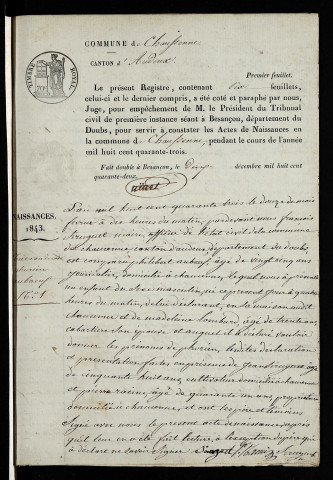 TIMBRE ROYAL
COMMUNE de Chaussenne
CANTON d'Audeux
Premier feuillet.
Le présent Registre, contenant six feuillets,
celui-ci et le dernier compris, a été coté et paraphé par nous,
Juge, pour empêchement de M. le Président du Tribunal
civil de première instance séant à Besançon, département du
Doubs, pour servir à constater les Actes de Naissances en
la commune de Chaussenne, pendant le cours de l'année
mil huit cent quarante-trois.
Fait double à Besançon, le Douze décembre mil huit cent
quarante-deux.
NAISSANCES.
1843.
N° 1
L'an mil huit cent quarante trois le douze du mois
février à dix heures du matin, pardevant nous françois
maire, officier de l'état civil de la commune
de chaucenne, canton d'audeux, département du doubs
est comparu philibert aubœuf, âgé de vingt cinq ans
journalier, domicilié à chaucenne, lequel nous a présenté
un enfant du sexe masculin, né ce jourd'hui à quatre
heures du matin, de lui déclarant, en sa maison audit
chaucenne et de madeleine âgée de trente ans,
son épouse et auquel il a déclaré vouloir
donner les prénoms de les dites déclaration
et présentation faites en présence de jean
de cinquante huit ans, cultivateur domicilié à chaucenne
et pierre racine, âgé de quarante un ans, propriétaire
domicilié à chaucenne, et ont les père et témoins
signé avec nous le présent acte de naissance, après
qu'il leur en a été fait lecture, à l'exception du père qui
a déclaré ne savoir signer